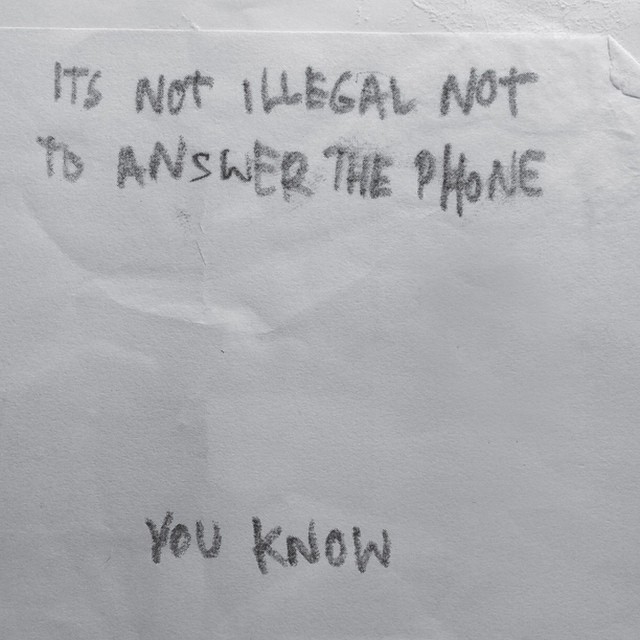 ITS NOT ILLEGAL NOT
TO ANSWER THE PHONE
YOU KNOW